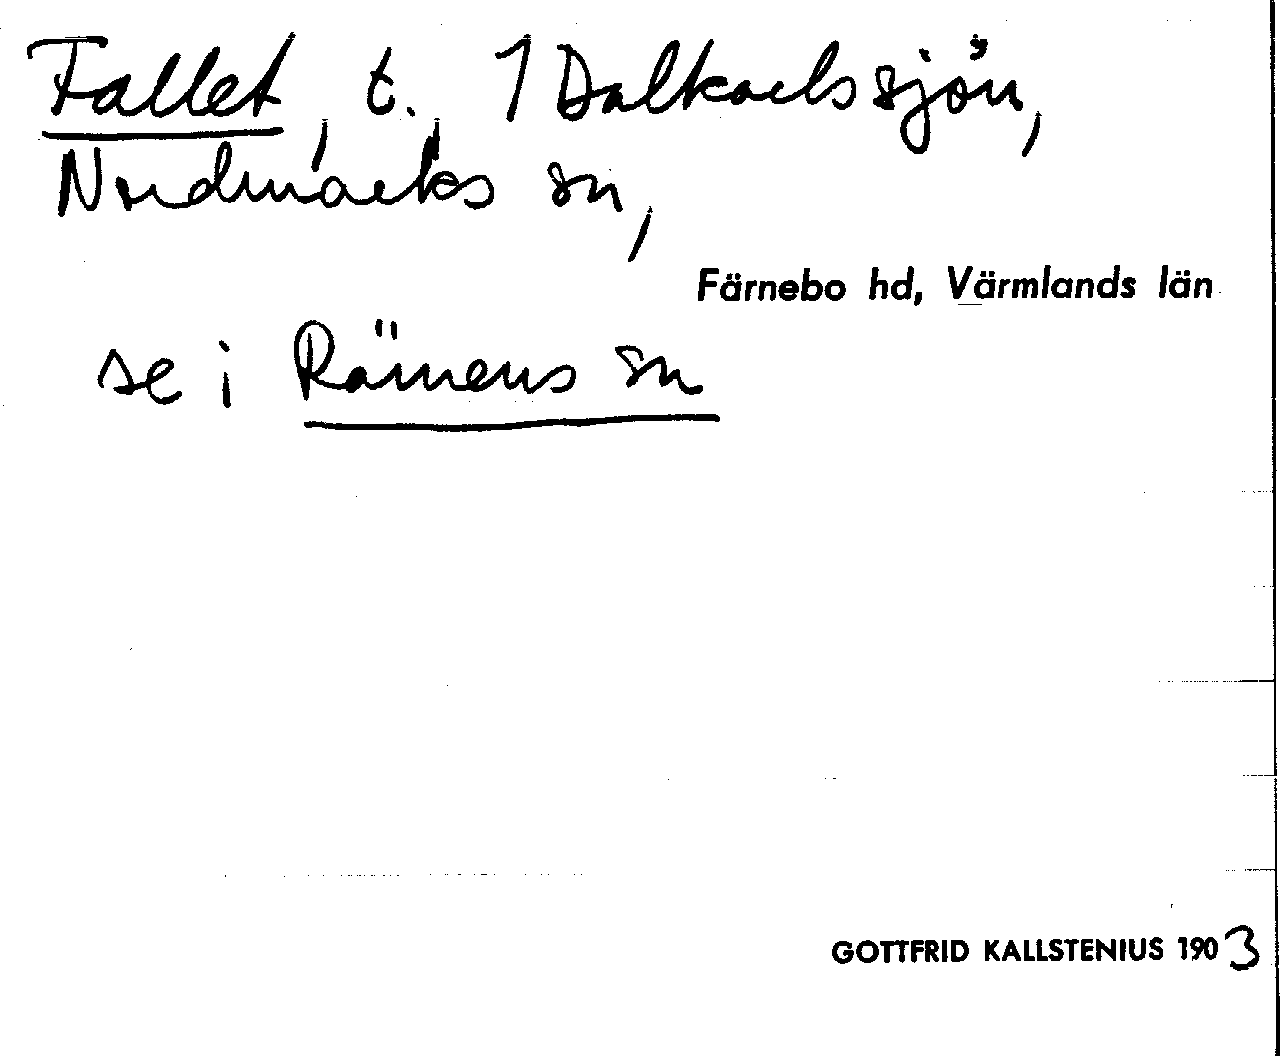 Fallet, t. 1 Dalkarlssjön,
Nordmarks sn,
Färnebo hd, Värmlands län
se i Rämens sn
GOTTFRID KALLSTENIUS 1903